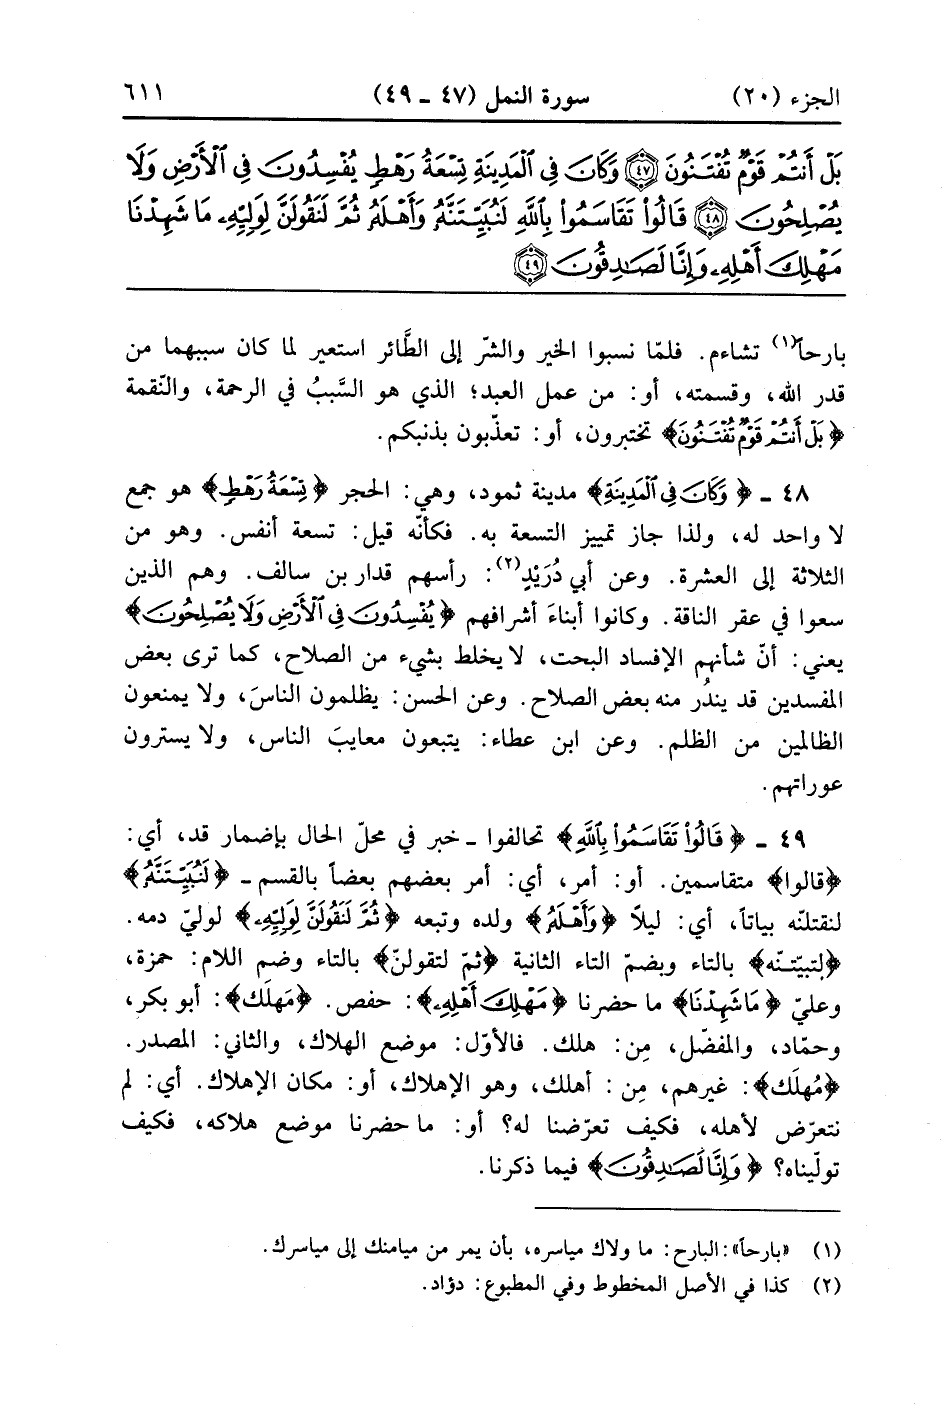 الجزء (٢٠) سورة النمل (٤٧ ـ ٤٩) ٦١١
بَلْ أَنتُمْ قَوْمٌ تُفْتَنُونَ ﴿٤٧﴾ وَكَانَ فِي الْمَدِينَةِ تِسْعَةُ رَهْطٍ يُفْسِدُونَ فِي الْأَرْضِ وَلَا
يُصْلِحُونَ ﴿٤٨﴾ قَالُوا تَقَاسَمُوا بِاللَّهِ لَنُبَيِّتَنَّهُ وَأَهْلَهُ ثُمَّ لَنَقُولَنَّ لِوَلِيِّهِ مَا شَهِدْنَا
مَهْلِكَ أَهْلِهِ وَإِنَّا لَصَادِقُونَ ﴿٤٩﴾
بارحاً(١) تشاءم. فلمّا نسبوا الخير والشرّ إلى الطَّائر استعير لما كان سببهما من
قدر الله، وقسمته، أو: من عمل العبد؛ الذي هو السَّببُ في الرحمة، والنّقمة
﴿بَلْ أَنتُمْ قَوْمٌ تُفْتَنُونَ﴾ تختبرون، أو: تعذّبون بذنبكم.
٤٨ ـ ﴿وَكَانَ فِي الْمَدِينَةِ﴾ مدينة ثمود، وهي: الحجر ﴿تِسْعَةُ رَهْطٍ﴾ هو جمع
لا واحد له، ولذا جاز تمييز التسعة به. فكأنّه قيل: تسعة أنفس. وهو من
الثلاثة إلى العشرة. وعن أبي دُرَيْدٍ(٢): رأسهم قدار بن سالف. وهم الذين
سعوا في عقر الناقة. وكانوا أبناءَ أشرافهم ﴿يُفْسِدُونَ فِي الْأَرْضِ وَلَا يُصْلِحُونَ﴾
يعني: أنّ شأنهم الإفساد البحت، لا يخلط بشيء من الصلاح، كما ترى بعض
المفسدين قد يندُر منه بعض الصلاح. وعن الحسن: يظلمون الناسَ، ولا يمنعون
الظالمين من الظلم. وعن ابن عطاء: يتبعون معايبَ الناس، ولا يسترون
عوراتهم.
٤٩ ـ ﴿قَالُوا تَقَاسَمُوا بِاللَّهِ﴾ تحالفوا ـ خبر في محلّ الحال بإضمار قد، أي:
﴿قالوا﴾ متقاسمين. أو: أمر، أي: أمر بعضهم بعضاً بالقسم ـ ﴿لَنُبَيِّتَنَّهُ﴾
لنقتلنّه بياتاً، أي: ليلًا ﴿وَأَهْلَهُ﴾ ولده وتبعه ﴿ثُمَّ لَنَقُولَنَّ لِوَلِيِّهِ﴾ لوليّ دمه.
﴿لتبيّتنّه﴾ بالتاء وبضمّ التاء الثانية ﴿ثمّ لتقولنّ﴾ بالتاء وضم اللام: حمزة،
وعليّ ﴿مَا شَهِدْنَا﴾ ما حضرنا ﴿مَهْلِكَ أَهْلِهِ﴾: حفص. ﴿مَهلَك﴾: أبو بكر،
وحمّاد، والمفضّل، مِن: هلك. فالأوّل: موضع الهلاك، والثاني: المصدر.
﴿مُهلَك﴾: غيرهم، مِن: أهلك، وهو الإهلاك، أو: مكان الإهلاك. أي: لم
نتعرّض لأهله، فكيف تعرّضنا له؟ أو: ما حضرنا موضع هلاكه، فكيف
تولّيناه؟ ﴿وَإِنَّا لَصَادِقُونَ﴾ فيما ذكرنا.
(١) «بارحاً»: البارح: ما ولاك مياسره، بأن يمر من ميامنك إلى مياسرك.
(٢) كذا في الأصل المخطوط وفي المطبوع: دؤاد.